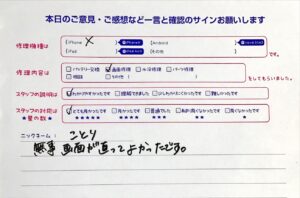 本日のご意見・ご感想など一言と確認のサインお願いします
修理機種は iPhone X iPad Android その他 です。
修理内容は バッテリー交換 画面修理 水没修理 パーツ修理 相談 その他( ) をしてもらいました。
スタッフの説明は わかりやすかったです 理解できました 少しわかりにくかったです 難しかったです
スタッフの対応は ★星の数★ とても良かったです 良かったです 普通でした あまり良くなかったです 良くなかったです
★★★★★ ★★★★ ★★★ ★★ ★
ニックネーム: ことり
無事 画面が直ってよかったです。